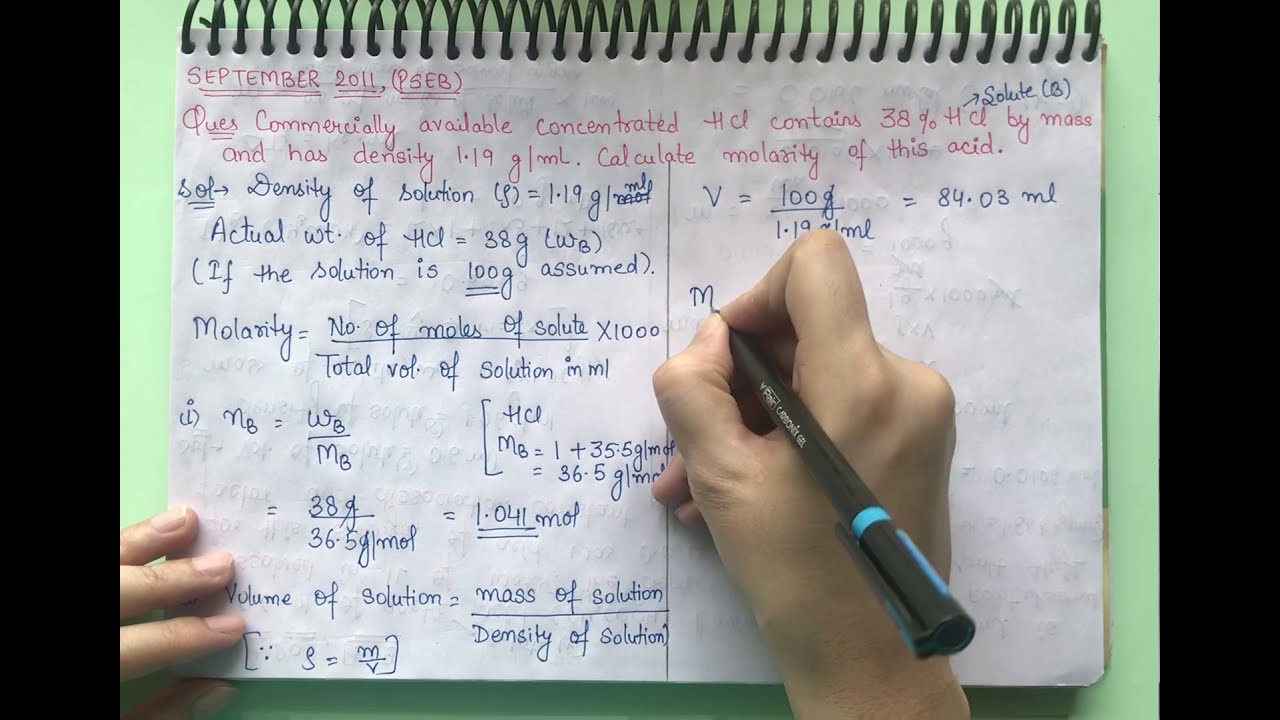 SEPTEMBER 2011, (PSEB)
→ Solute (B)
Ques Commercially available concentrated HCl contains 38% HCl by mass
and has density 1.19 g/mL. Calculate molarity of this acid.
Sol→ Density of solution (ρ) = 1.19 g/ml
Actual wt. of HCl = 38g (wB)
(If the solution is 100g assumed).
Molarity = No. of moles of solute × 1000
Total vol. of solution in ml
i) nB = wB
MB
[ HCl
MB = 1 + 35.5 g/mol
= 36.5 g/mol
= 38g = 1.041 mol
36.5 g/mol
Volume of solution = mass of solution
Density of solution
[∵ ρ = m/V]
V = 100g = 84.03 ml
1.19 g/ml
M
CARBONIX GEL